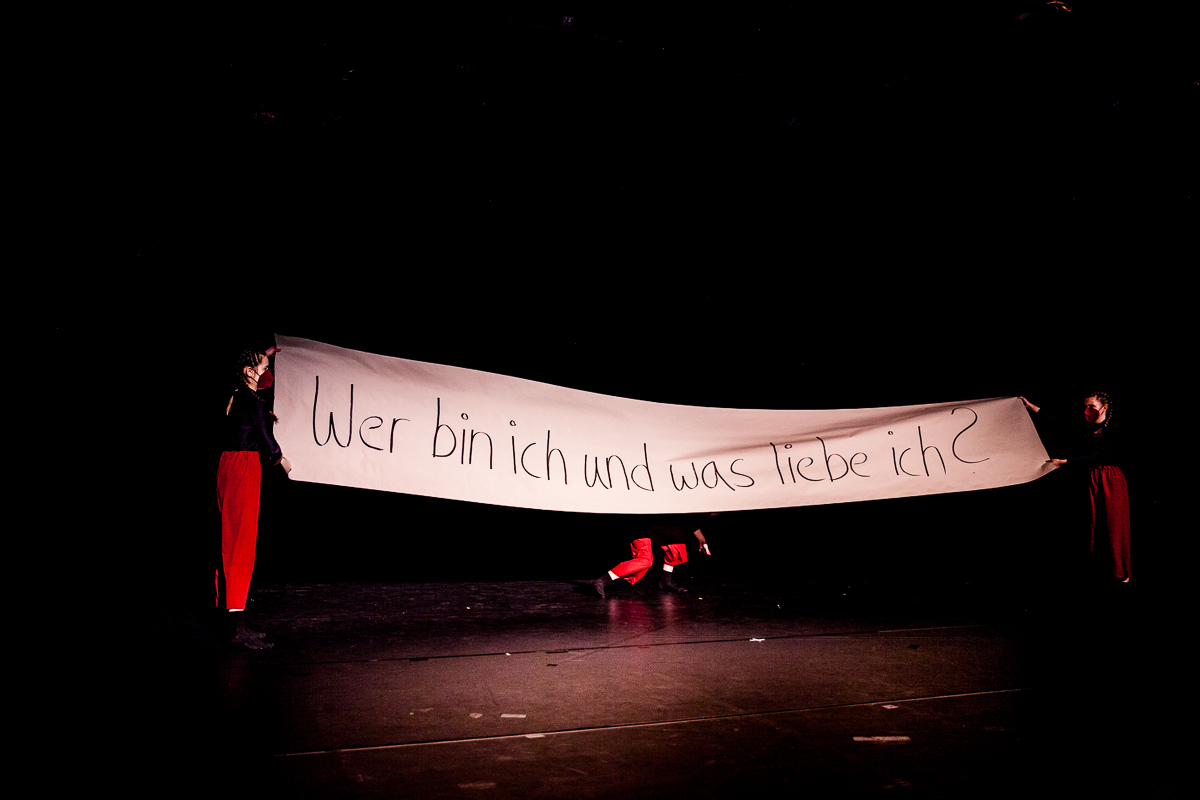 Wer bin ich und was liebe ich?